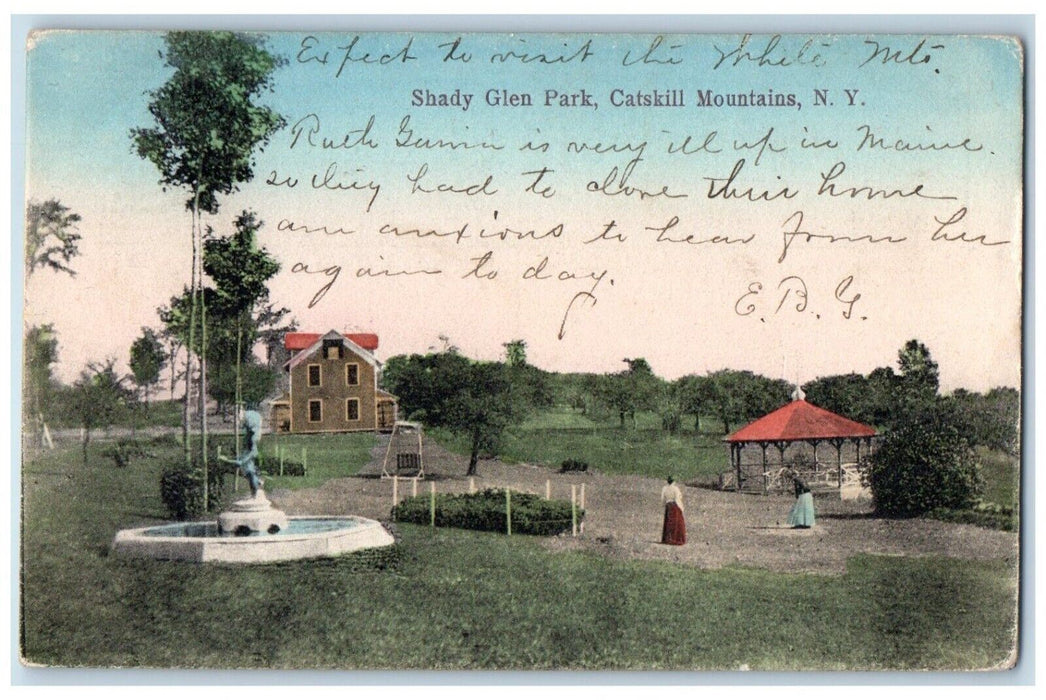 Expect to visit the White Mts.
Shady Glen Park, Catskill Mountains, N. Y.
Ruth is very ill up in Maine
so they had to close their home
am anxious to hear from her
again to day.
E. B. G.